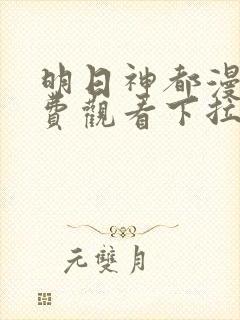 明日神都漫
費觀看下拉
元雙月